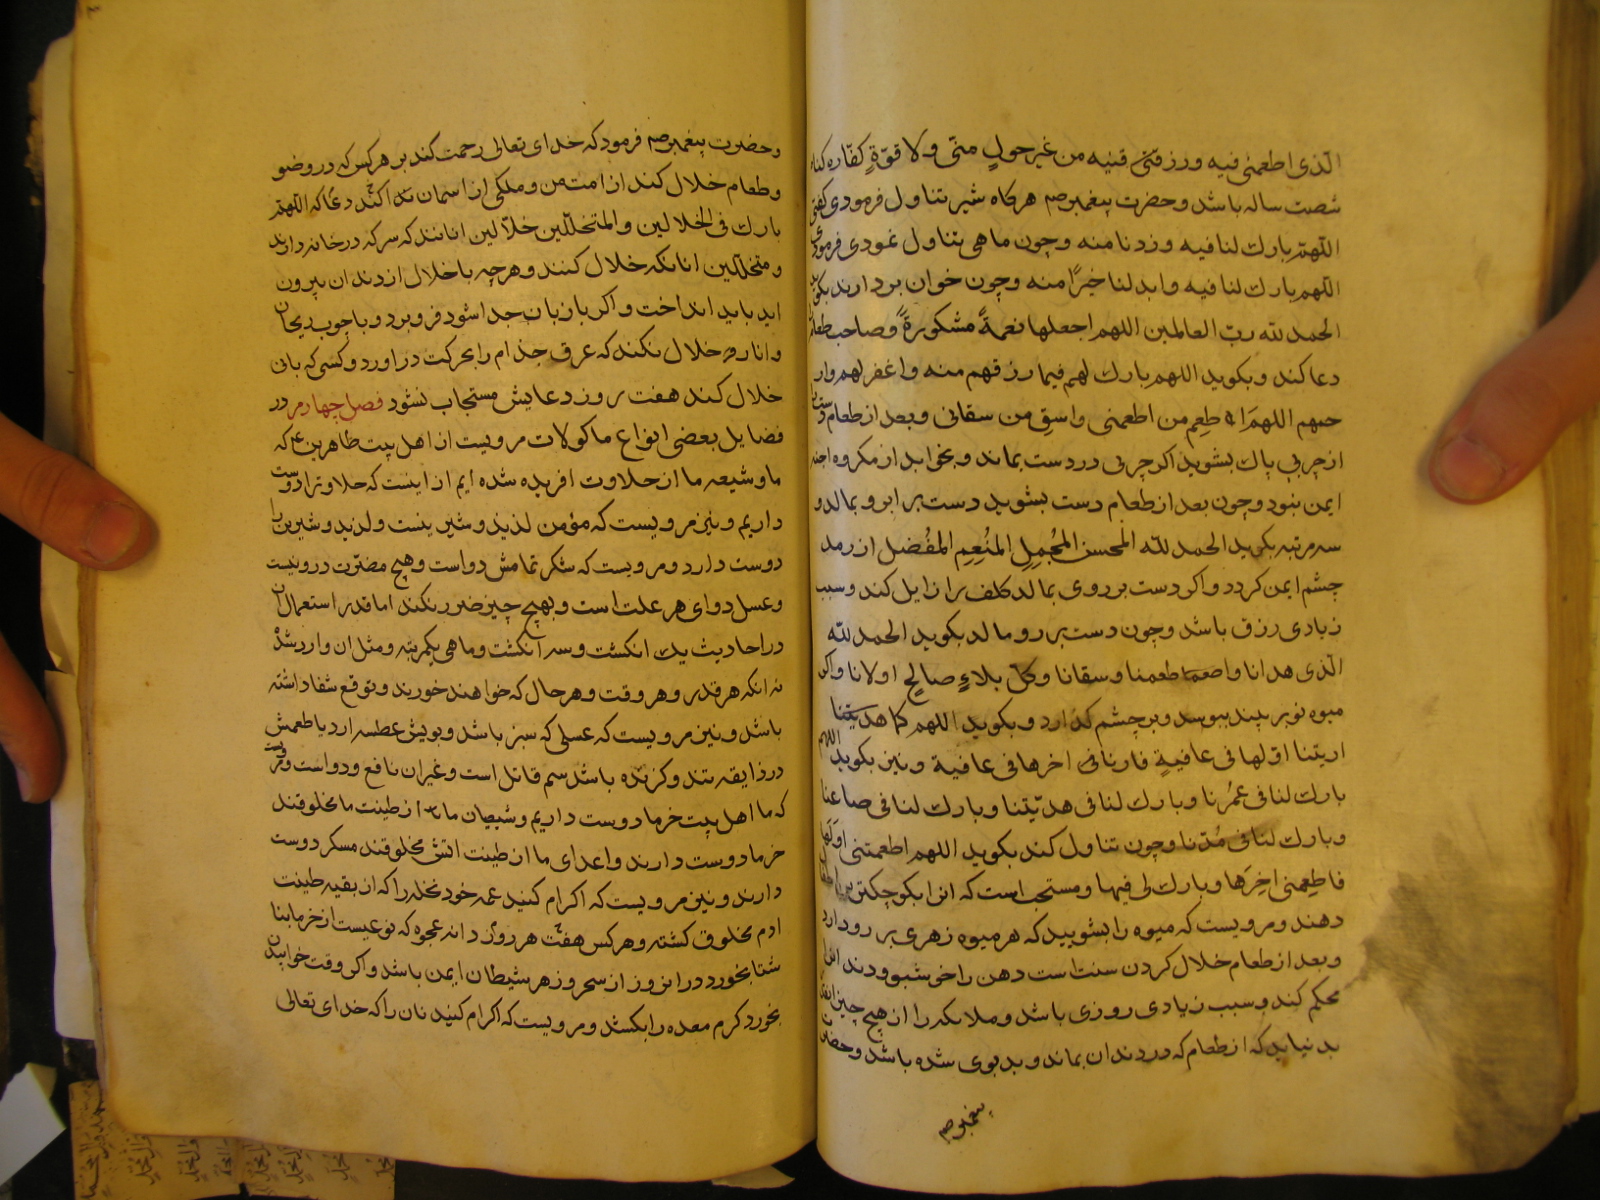 الّذی اطعمنی فیه ورزقنی قنیه من غیر حولٍ منّی ولا قوّةٍ کفّاره کناه
شصت ساله باشد وحضرت پیغمبر صم هرکاه شیر تناول فرمودی کفتی
اللهمّ بارك لنا فیه وزدنا منه وچون ماهی تناول نمودی فرمودی
اللهم بارك لنا فیه وابد لنا خیرًا منه وچون خوان بردارند بکوید
الحمد لله ربّ العالمین اللهم اجعلها نعمةً مشکورةً وصاحب طعام
دعا کند وبکوید اللهم بارك لهم فیما رزقهم منه واغفر لهم وار
حمهم اللهمّ طعم من اطعمنی واسق من سقانی وبعد از طعام دستان
از چربی پاك بشوید اکر چربی در دست بماند وبخوابد از مکروه اجنه
ایمن نبود وچون بعد از طعام دست بشوید دست بر ابرو بمالد و
سه مرتبه بکوید الحمد لله المحسن المُجمِلِ المُنعِمِ المُفضل از رمد
چشم ایمن کردد واکر دست بر روی بمالد کلف را زایل کند وسبب
زیادی رزق باشد وچون دست بر رو مالد بکوید الحمد لله
الّذی هدانا واطعمنا وسقانا وکلّ بلاءٍ صالحٍ اولانا واکر
میوه نوبر بیند ببوسد وبر چشم کذارد وبکوید اللهم کما
اریتنا اوّلها فی عافیةٍ فارنا فی اخرها فی عافیة ونیز بکوید اللهم
بارك لنا فی عمُرنا وبارك لنا فی هدیّتنا وبارك لنا فی صاعنا
وبارك لنا فی مُدّنا وچون تناول کند بکوید اللهم اطعمتنی اوّلها
فاطعمنی اخرها وبارك لی فیها ومستحب است که انرا بکوچکترین اطفال
دهند ومرویست که میوه را بشویید که هر میوه زهری بر رو دارد
وبعد از طعام خلال کردن سنت است دهن را خوشبو ودندانرا
محکم کند وسبب زیادی روزی باشد وملائکه را از هیچ چیز انقدر
بد نیاید که از طعام که در دندان بماند وبد بوی شده باشد وحضرت
پیغمبر صم
وحضرت پیغمبر صم فرمود که خدای تعالی رحمت کند بر هر کس که در وضو
وطعام خلال کند از امت من وملکی از اسمان ندا کند دعا که اللهمّ
بارك فی الخلالین والمتخلّلین خلّالین انانند که سرکه در خانه دارند
ومتخلّلین انانکه خلال کنند وهر چه با خلال از دندان بیرون
اید باید انداخت واکر با زبان جدا شود فرو برد وبا چوب ریحان
وانار خلال نکند که عرق جذام را بحرکت دراورد وکسی که بانی
خلال کند هفت روز دعایش مستجاب نشود فصل چهارم در
فضایل بعضی انواع ماکولات مرویست از اهل بیت طاهرین ع که
ما وشیعه ما از حلاوت افریده شده ایم از اینست که حلاوترا دوست
داریم ونیز مرویست که مؤمن لذیذ وشیرینست ولذیذ وشیرین را
دوست دارد ومرویست که شکر تمامش دواست وهیچ مضرّت درو نیست
وعسل دوای هر علت است وبهیچ چیز ضرر نکند اما قدر استعمال ان
در احادیث یك انکشت وسه انکشت وماهی یکمرتبه ومثل ان وارد شده
نه انکه هر قدر وهر وقت وهر حال که خواهند خورند وتوقع شفا داشته
باشد ونیز مرویست که عسلی که سبز باشد وبویش عطسه ارد یا طعمش
در ذایقه تند وکزنده باشد سم قاتل است وغیر ان نافع ودواست ومرویست
که ما اهل بیت خرما دوست داریم وشیعیان ما از طینت ما مخلوقند
خرما دوست دارند واعدای ما از طینت اتش مخلوقند مسکر دوست
دارند ونیز مرویست که اکرام کنید عمه خود نخله را که از بقیه طینت
ادم مخلوق کشته وهر کس هر روز هفت دانه عجوه که نوعیست از خرما بنا
شتا بخورد در انروز از سحر وزهر شیطان ایمن باشد واکر وقت خوابیدن
بخورد کرم معده را بکشد ومرویست که اکرام کنید نان را که خدای تعالی